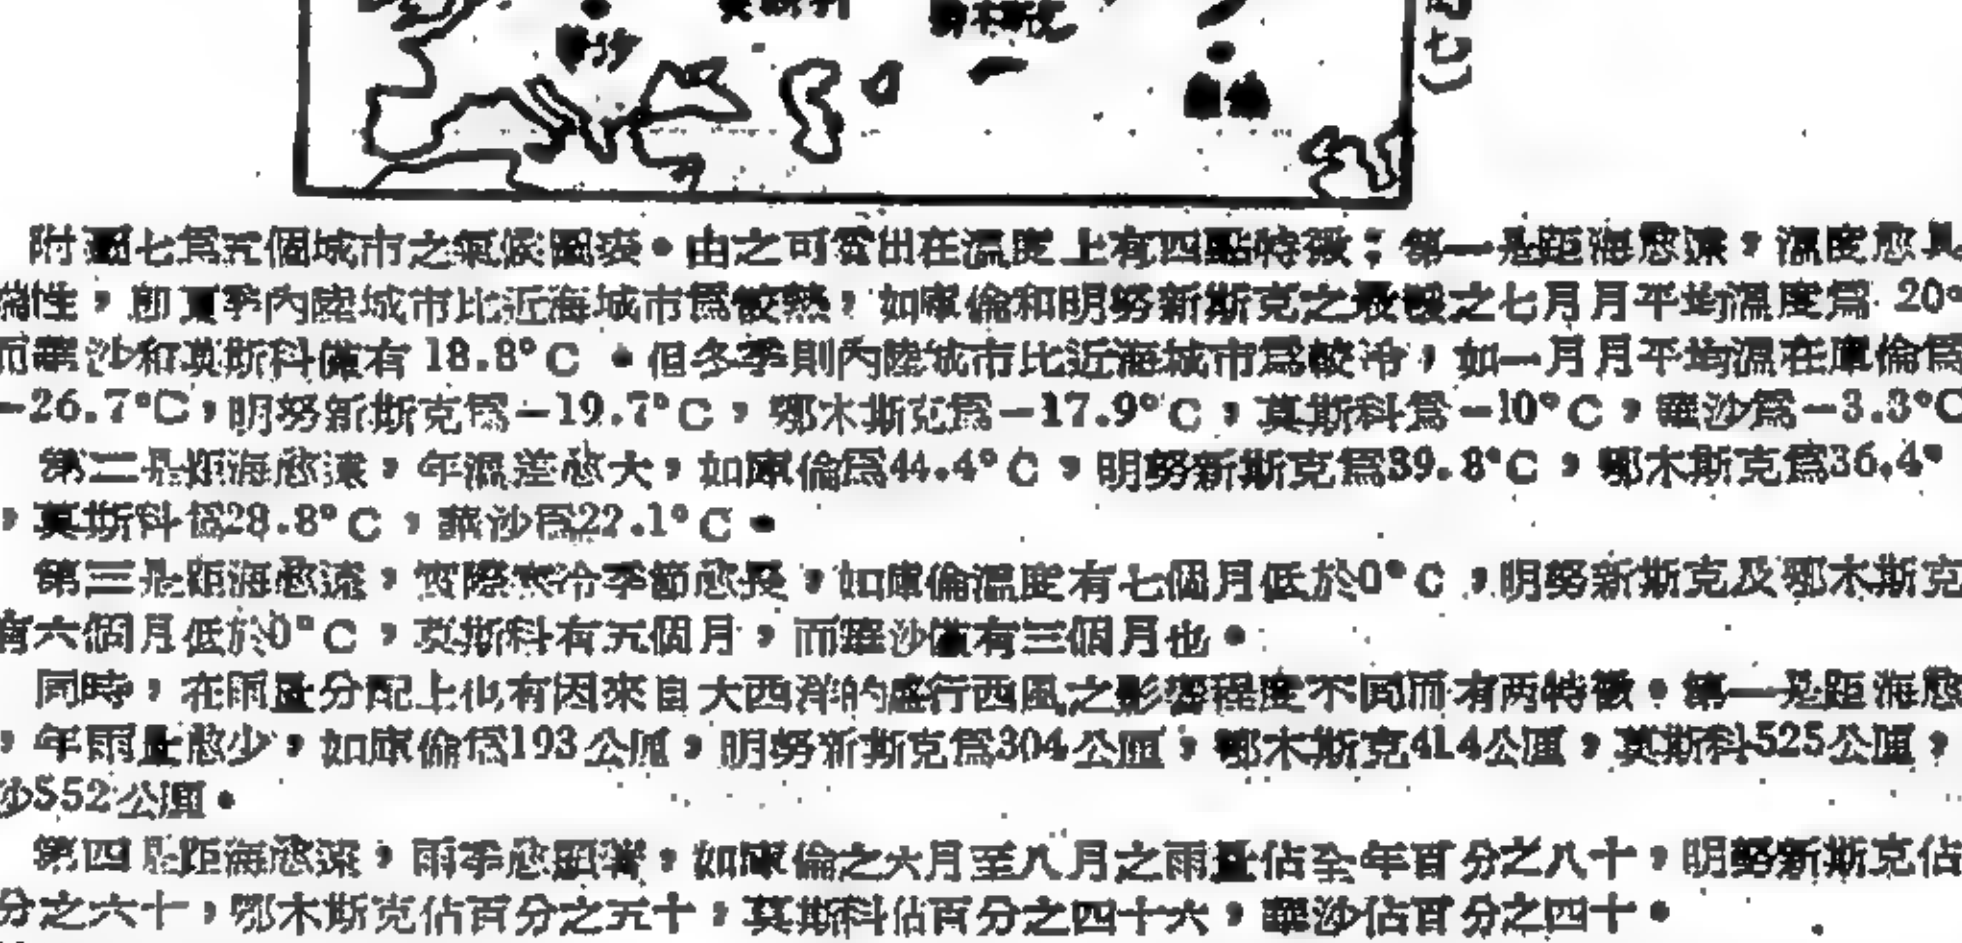 華沙
莫斯科
鄂木斯克
七)
附圖七為五個城市之氣候圖表。由之可看出在溫度上有四點特徵：第一是距海愈遠，溫度愈具
端性，即夏季內陸城市比近海城市為較熱，如庫倫和明努新斯克之最暖之七月月平均溫度為20°
而華沙和莫斯科僅有18.8°C。但冬季則內陸城市比近海城市為較冷，如一月月平均溫在庫倫為
-26.7°C，明努新斯克為-19.7°C，鄂木斯克為-17.9°C，莫斯科為-10°C，華沙為-3.3°C
第二是距海愈遠，年溫差愈大，如庫倫為44.4°C，明努新斯克為39.8°C，鄂木斯克為36.4°
，莫斯科為28.8°C，華沙為22.1°C。
第三是距海愈遠，實際寒冷季節愈長，如庫倫溫度有七個月低於0°C，明努新斯克及鄂木斯克
有六個月低於0°C，莫斯科有五個月，而華沙僅有三個月也。
同時，在雨量分配上也有因來自大西洋的盛行西風之影響程度不同而有两特徵。第一是距海愈
，年雨量愈少，如庫倫為193公厘，明努新斯克為304公厘，鄂木斯克414公厘，莫斯科525公厘，
沙552公厘。
第四是距海愈遠，雨季愈顯著，如庫倫之六月至八月之雨量佔全年百分之八十，明努新斯克佔
分之六十，鄂木斯克佔百分之五十，莫斯科佔百分之四十六，華沙佔百分之四十。